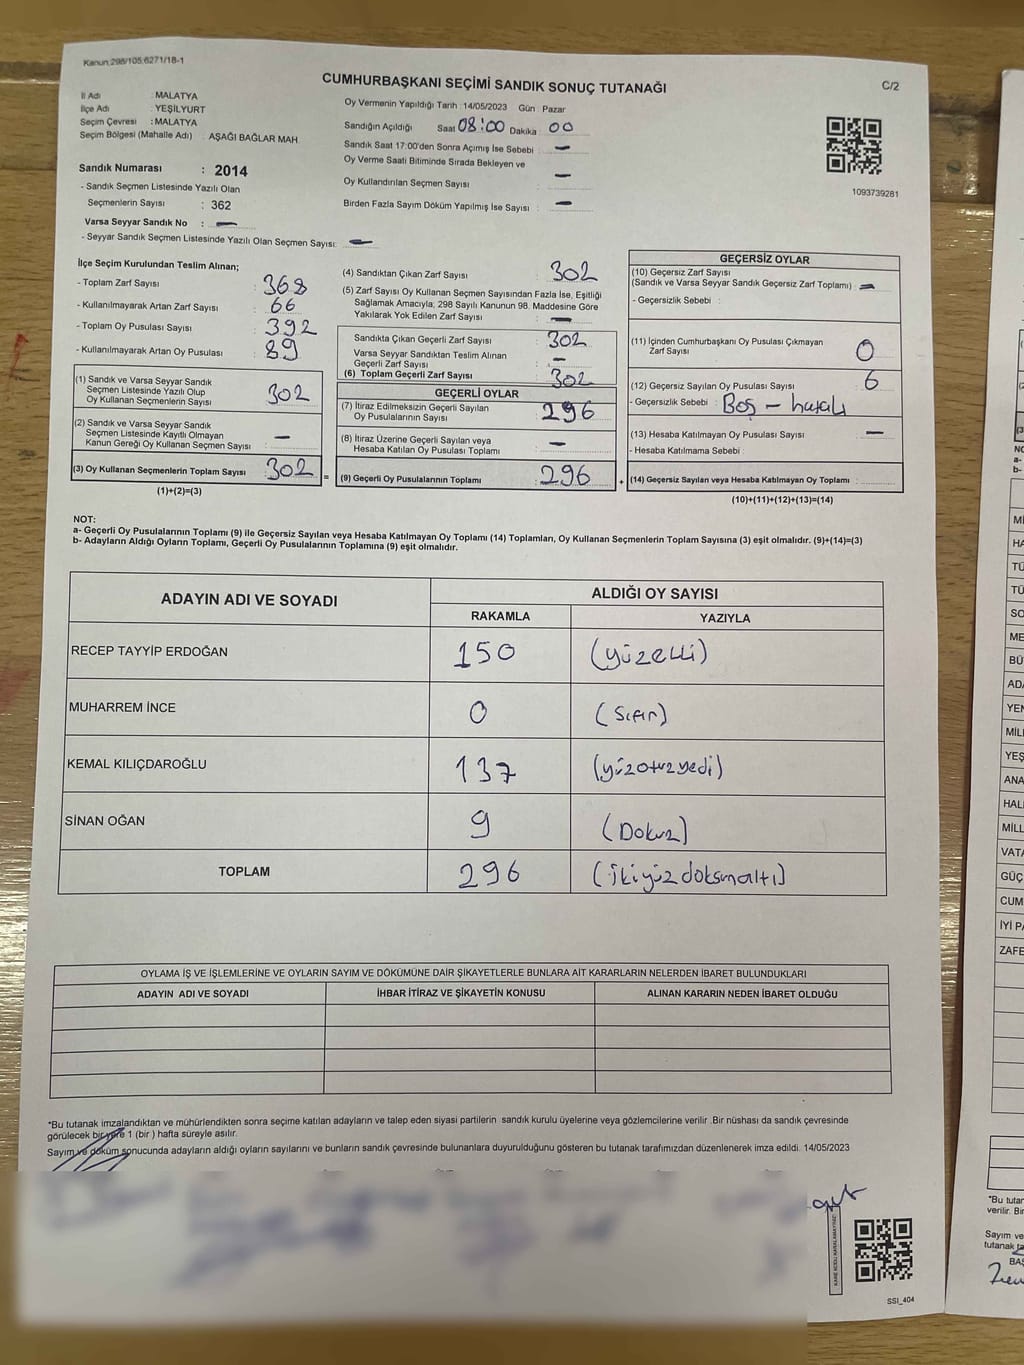 Kanun:298/105;6271/18-1
CUMHURBAŞKANI SEÇİMİ SANDIK SONUÇ TUTANAĞI
C/2
İl Adı : MALATYA
İlçe Adı : YEŞİLYURT
Seçim Çevresi : MALATYA
Seçim Bölgesi (Mahalle Adı) : AŞAĞI BAĞLAR MAH.
Sandık Numarası : 2014
- Sandık Seçmen Listesinde Yazılı Olan
Seçmenlerin Sayısı : 362
Varsa Seyyar Sandık No : —
- Seyyar Sandık Seçmen Listesinde Yazılı Olan Seçmen Sayısı: —
Oy Vermenin Yapıldığı Tarih :14/05/2023 Gün : Pazar
Sandığın Açıldığı Saat 08:00 Dakika : 00
Sandık Saat 17:00'den Sonra Açımış İse Sebebi : —
Oy Verme Saati Bitiminde Sırada Bekleyen ve
Oy Kullandırılan Seçmen Sayısı : —
Birden Fazla Sayım Döküm Yapılmış İse Sayısı : —
1093739281
İlçe Seçim Kurulundan Teslim Alınan;
- Toplam Zarf Sayısı : 368
- Kullanılmayarak Artan Zarf Sayısı : 66
- Toplam Oy Pusulası Sayısı : 392
- Kullanılmayarak Artan Oy Pusulası : 89
(1) Sandık ve Varsa Seyyar Sandık
Seçmen Listesinde Yazılı Olup
Oy Kullanan Seçmenlerin Sayısı : 302
(2) Sandık ve Varsa Seyyar Sandık
Seçmen Listesinde Kayıtlı Olmayan
Kanun Gereği Oy Kullanan Seçmen Sayısı : —
(3) Oy Kullanan Seçmenlerin Toplam Sayısı : 302
(1)+(2)=(3)
=
(4) Sandıktan Çıkan Zarf Sayısı : 302
(5) Zarf Sayısı Oy Kullanan Seçmen Sayısından Fazla İse, Eşitliği
Sağlamak Amacıyla; 298 Sayılı Kanunun 98. Maddesine Göre
Yakılarak Yok Edilen Zarf Sayısı : —
Sandıkta Çıkan Geçerli Zarf Sayısı : 302
Varsa Seyyar Sandıktan Teslim Alınan
Geçerli Zarf Sayısı : —
(6) Toplam Geçerli Zarf Sayısı : 302
GEÇERLİ OYLAR
(7) İtiraz Edilmeksizin Geçerli Sayılan
Oy Pusulalarının Sayısı : 296
(8) İtiraz Üzerine Geçerli Sayılan veya
Hesaba Katılan Oy Pusulası Toplamı : —
(9) Geçerli Oy Pusulalarının Toplamı : 296
+
GEÇERSİZ OYLAR
(10) Geçersiz Zarf Sayısı
(Sandık ve Varsa Seyyar Sandık Geçersiz Zarf Toplamı) : —
- Geçersizlik Sebebi :
(11) İçinden Cumhurbaşkanı Oy Pusulası Çıkmayan
Zarf Sayısı : 0
(12) Geçersiz Sayılan Oy Pusulası Sayısı : 6
- Geçersizlik Sebebi : Boş – hatalı
(13) Hesaba Katılmayan Oy Pusulası Sayısı : —
- Hesaba Katılmama Sebebi :
(14) Geçersiz Sayılan veya Hesaba Katılmayan Oy Toplamı :
(10)+(11)+(12)+(13)=(14)
NOT:
a- Geçerli Oy Pusulalarının Toplamı (9) ile Geçersiz Sayılan veya Hesaba Katılmayan Oy Toplamı (14) Toplamları, Oy Kullanan Seçmenlerin Toplam Sayısına (3) eşit olmalıdır. (9)+(14)=(3)
b- Adayların Aldığı Oyların Toplamı, Geçerli Oy Pusulalarının Toplamına (9) eşit olmalıdır.
ADAYIN ADI VE SOYADI ALDIĞI OY SAYISI
RAKAMLA YAZIYLA
RECEP TAYYİP ERDOĞAN 150 (yüzelli)
MUHARREM İNCE 0 (Sıfır)
KEMAL KILIÇDAROĞLU 137 (yüzotuzyedi)
SİNAN OĞAN 9 (Dokuz)
TOPLAM 296 (ikiyüzdoksanaltı)
OYLAMA İŞ VE İŞLEMLERİNE VE OYLARIN SAYIM VE DÖKÜMÜNE DAİR ŞİKAYETLERLE BUNLARA AİT KARARLARIN NELERDEN İBARET BULUNDUKLARI
ADAYIN ADI VE SOYADI İHBAR İTİRAZ VE ŞİKAYETİN KONUSU ALINAN KARARIN NEDEN İBARET OLDUĞU
*Bu tutanak imzalandıktan ve mühürlendikten sonra seçime katılan adayların ve talep eden siyasi partilerin sandık kurulu üyelerine veya gözlemcilerine verilir. Bir nüshası da sandık çevresinde
görülecek bir yere 1 (bir ) hafta süreyle asılır.
Sayım ve döküm sonucunda adayların aldığı oyların sayılarını ve bunların sandık çevresinde bulunanlara duyurulduğunu gösteren bu tutanak tarafımızdan düzenlenerek imza edildi. 14/05/2023
KARE KODU KARALAMAYINIZ!
SSI_404